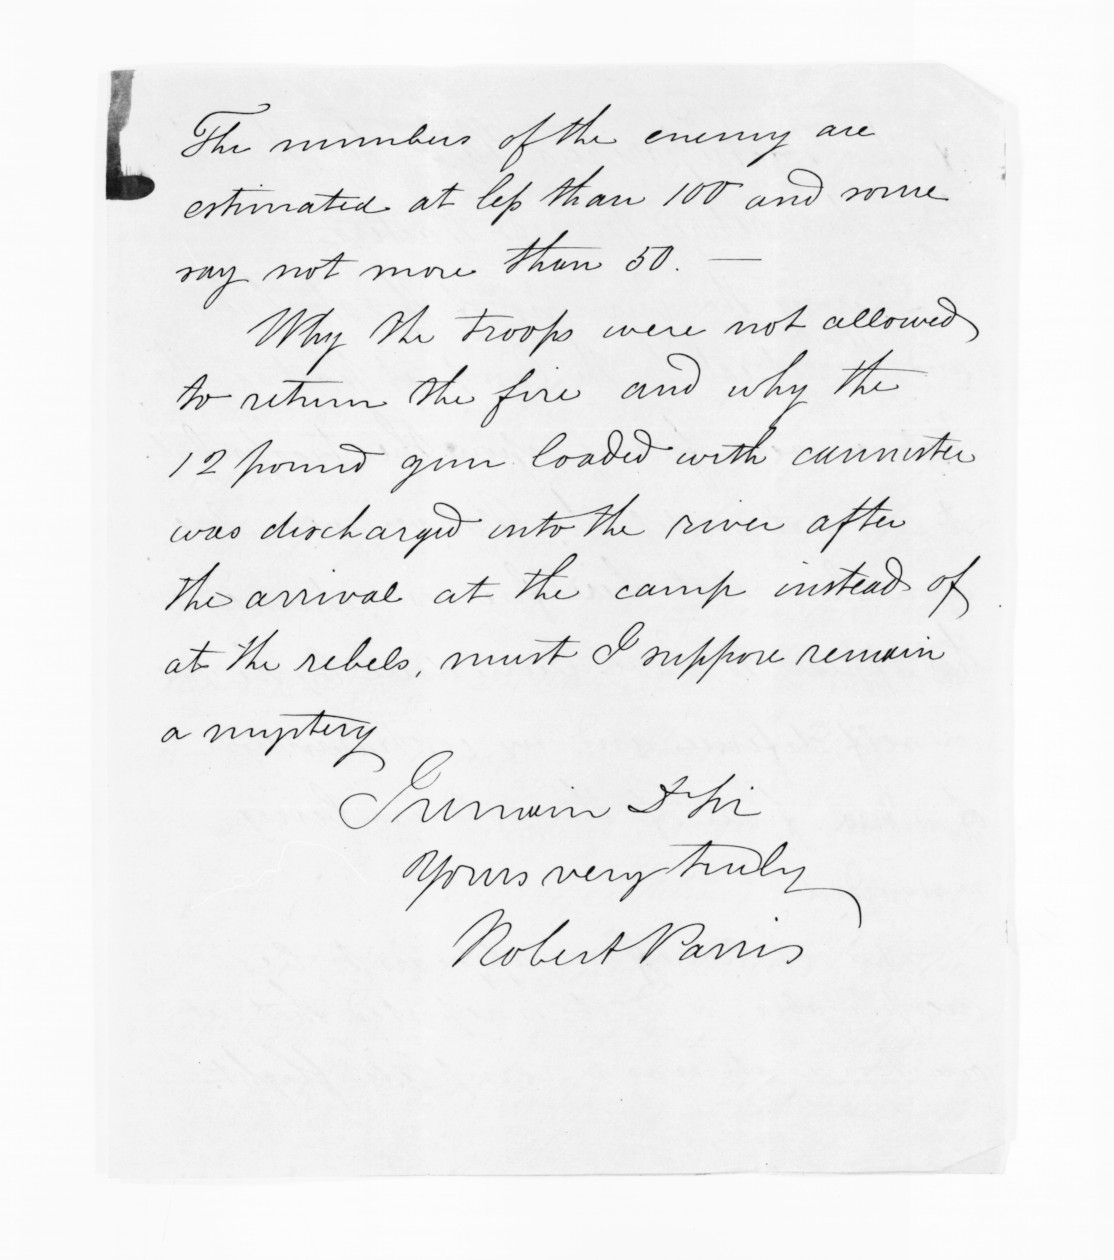 The numbers of the enemy are
estimated at less than 100 and some
say not more than 50. —
Why the troops were not allowed
to return the fire and why the
12 pound gun loaded with cannister
was discharged into the river after
the arrival at the camp instead of
at the rebels, must I suppose remain
a mystery
I remain Dr Sir
Yours very truly
Robert Parris